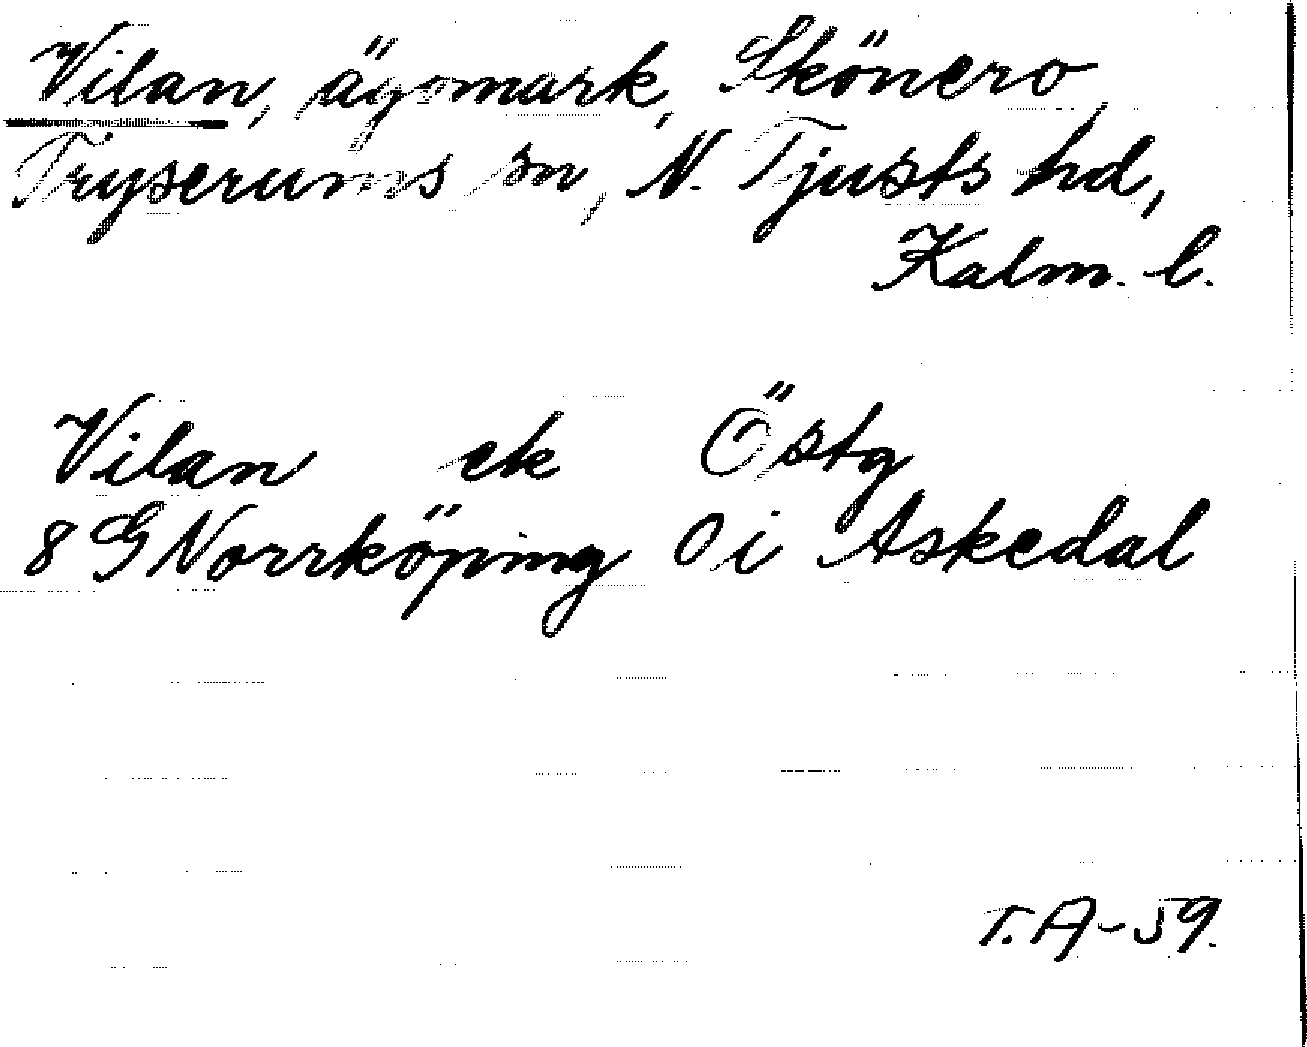 Vilan, ägomark, Skönero,
Tryserums sn, N. Tjusts hd,
Kalm. l.
Vilan ek Östg
8 G Norrköping 0 i Askedal
T.A-59.